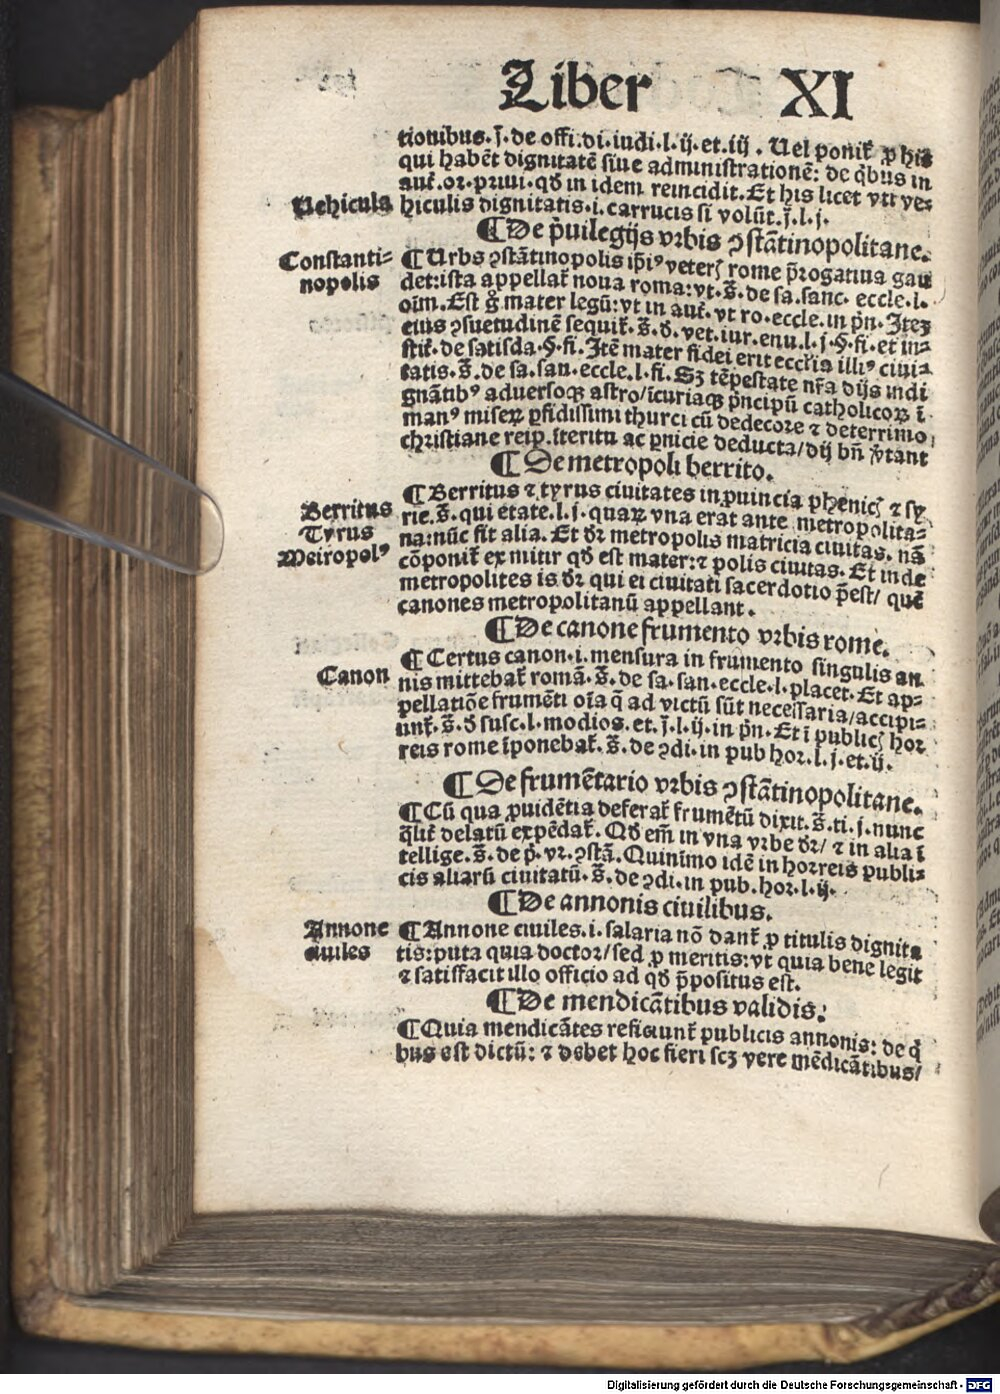 Liber XI
tionibus. j̄. de offi. di. iudi. l. ij. et. iij. Uel ponit᷑ ꝓ his
qui habēt dignitatē siue administrationē: de q̄bus in
aut᷑. or. priui. qd̄ in idem reincidit. Et his licet vti ve⸗
Vehicula
hiculis dignitatis. i. carrucis si volūt. j̄. l. j.
¶ De p̄uilegijs vrbis ꝯstātinopolitane.
Constanti⸗
nopolis
¶ Urbs ꝯstātinopolis ip̄iꝰ veterꝭ rome p̄rogatiua gau
det: ista appellat᷑ noua roma: vt. s̄. de sa. sanc. eccle. l.
oīm. Est g̊ mater legū: vt in aut᷑. vt ro. eccle. in pn̄. Itēꝫ
eius ꝯsuetudinē sequit᷑. s̄. d̄. vet. iur. enu. l. j. §. fi. et in⸗
stit᷑. de satisda. §. fi. Itē mater fidei erit ecclīa illiꝰ ciui⸗
tatis. s̄. de sa. san. eccle. l. fi. Sꝫ tēpestate nr̄a dijs indi
gnātibꝰ aduersoqꝫ astro/ īcuriaqꝫ pn̄cipū catholicoꝝ ī
manꝰ miseꝝ ꝑfidissimi thurci cū dedecore ⁊ deterrimo
christiane reip. īteritu ac ꝑnicie deducta/ dij bn̄ v̄tant
¶ De metropoli berrito.
Berritus
Tyrus
Metropolꝰ
¶ Berritus ⁊ tyrus ciuitates in ꝓuincia phenicꝭ ⁊ sy
rie. s̄. qui etate. l. j. quaꝝ vna erat ante metropolita⸗
na: nūc sit alia. Et dr̄ metropolis matricia ciuitas. nā
cōponit᷑ ex mitir qd̄ est mater: ⁊ polis ciuitas. Et inde
metropolites is dr̄ qui ei ciuitati sacerdotio p̄est/ quē
canones metropolitanū appellant.
¶ De canone frumento vrbis rome.
Canon
¶ Certus canon. i. mensura in frumento singulis an
nis mittebat᷑ romā. s̄. de sa. san. eccle. l. placet. Et ap⸗
pellatiōe frumēti oīa q̄ ad victū sūt necessaria/ accipi⸗
unt᷑. s̄. d̄ susc. l. modios. et. j̄. l. ij. in pn̄. Et ī publicꝭ hor
reis rome īponebat᷑. s̄. de ꝯdi. in pub hor. l. j. et. ij.
¶ De frumētario vrbis ꝯstātinopolitane.
¶ Cū qua ꝓuidētia deferat᷑ frumētū dixit. s̄. ti. j. nunc
q̄lit᷑ delatū expēdat᷑. Qd̄ em̄ in vna vrbe dr̄/ ⁊ in alia ī
tellige. s̄. de p̄. vr. ꝯstā. Quinimo idē in horreis publi⸗
cis aliarū ciuitatū. s̄. de ꝯdi. in pub. hor. l. ij.
¶ De annonis ciuilibus.
Annone
ciuiles
¶ Annone ciuiles. i. salaria nō dant᷑ ꝓ titulis dignita
tis: puta quia doctor/ sed ꝓ meritis: vt quia bene legit
⁊ satisfacit illo officio ad qd̄ p̄positus est.
¶ De mendicātibus validis.
¶ Quia mendicātes reficiunt᷑ publicis annonis: de q̄
bus est dictū: ⁊ debet hoc fieri scꝫ vere mēdicātibus/
Digitalisierung gefördert durch die Deutsche Forschungsgemeinschaft - DFG